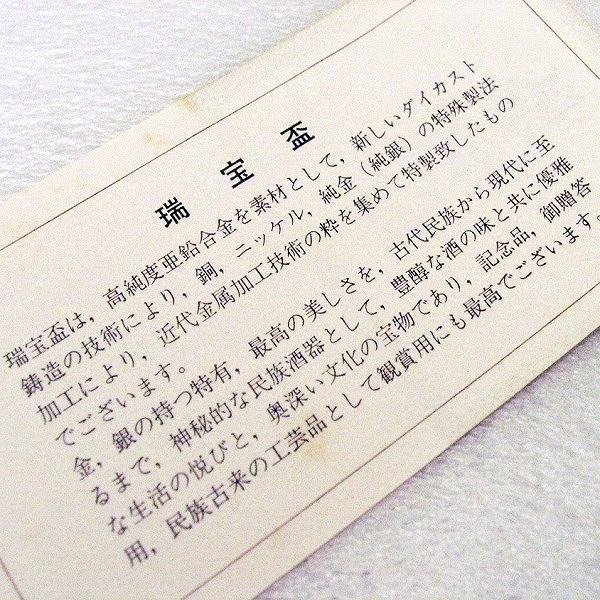 瑞宝盃
瑞宝盃は，高純度亜鉛合金を素材として，新しいダイカスト
鋳造の技術により，銅，ニッケル，純金（純銀）の特殊製法
加工により，近代金属加工技術の粋を集めて特製致したもの
でございます。
金，銀の持つ特有，最高の美しさを，古代民族から現代に至
るまで，神秘的な民族酒器として，豊醇な酒の味と共に優雅
な生活の悦びと，奥深い文化の宝物であり，記念品，御贈答
用，民族古来の工芸品として観賞用にも最高でございます。